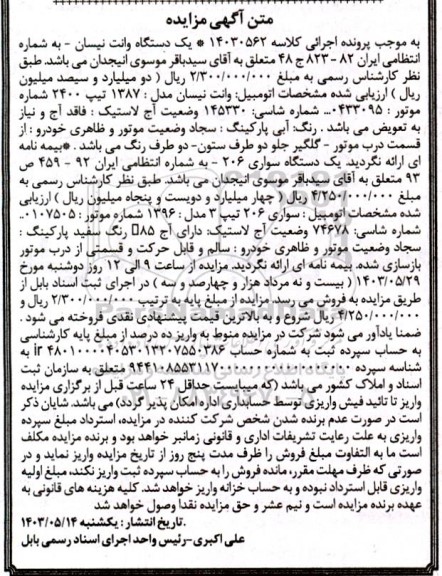 متن آگهی مزایده
به موجب پرونده اجرائی کلاسه ۱۴۰۳۰۵۶۲ * یک دستگاه وانت نیسان - به شماره
انتظامی ایران ۸۲ - ۸۲۳ ج ۴۸ متعلق به آقای سیدباقر موسوی انیجدان می باشد. طبق
نظر کارشناس رسمی به مبلغ ۲/۳۰۰/۰۰۰/۰۰۰ ریال ( دو میلیارد و سیصد میلیون
ریال ) ارزیابی شده مشخصات اتومبیل: وانت نیسان مدل : ۱۳۸۷ تیپ ۲۴۰۰ شماره
موتور : ۰۴۳۳۰۹۵... شماره شاسی: ۱۴۵۳۳۰ وضعیت آج لاستیک : فاقد آج و نیاز
به تعویض می باشد . رنگ: آبی پارکینگ : سجاد وضعیت موتور و ظاهری خودرو : از
قسمت درب موتور - گلگیر جلو دو طرف ستون- دو طرف رنگ می باشد . *بیمه نامه
ای ارائه نگردید. یک دستگاه سواری ۲۰۶ - به شماره انتظامی ایران ۹۲ - ۴۵۹ ص
۹۳ متعلق به آقای سیدباقر موسوی انیجدان می باشد. طبق نظر کارشناس رسمی به
مبلغ ۴/۲۵۰/۰۰۰/۰۰۰ ریال ( چهار میلیارد و دویست و پنجاه میلیون ریال ) ارزیابی
شده مشخصات اتومبیل : سواری ۲۰۶ تیپ ۲ مدل : ۱۳۹۶ شماره موتور : ۰۱۰۷۵۰۵...
شماره شاسی: ۷۴۶۷۸ وضعیت آج لاستیک: دارای آج ۸۵□ رنگ سفید پارکینگ :
سجاد وضعیت موتور و ظاهری خودرو : سالم و قابل حرکت و قسمتی از درب موتور
بازسازی شده. بیمه نامه ای ارائه نگردید. مزایده از ساعت ۹ الی ۱۲ روز دوشنبه مورخ
۱۴۰۳/۰۵/۲۹ ( بیست و نه مرداد هزار و چهارصد و سه ) در اجرای ثبت اسناد بابل از
طریق مزایده به فروش می رسد. مزایده از مبلغ پایه به ترتیب ۲/۳۰۰/۰۰۰/۰۰۰ ریال و
۴/۲۵۰/۰۰۰/۰۰۰ ریال شروع و به بالاترین قیمت پیشنهادی نقدی فروخته می شود .
ضمنا یادآور می شود شرکت در مزایده منوط به واریز ده درصد از مبلغ پایه کارشناسی
به حساب سپرده ثبت به شماره حساب ir ۴۸۰۱۰۰۰۰۴۰۵۳۰۱۳۲۰۷۵۵۰۳۸۶ به
شناسه سپرده متعلق به سازمان ثبت
اسناد و املاک کشور می باشد (که میبایست حداقل ۲۴ ساعت قبل از برگزاری مزایده
واریز تا تائید فیش واریزی توسط حسابداری اداره امکان پذیر گردد) می باشد. شایان ذکر
است در صورت عدم برنده شدن شخص شرکت کننده در مزایده، استرداد مبلغ سپرده
واریزی به علت رعایت تشریفات اداری و قانونی زمانبر خواهد بود و برنده مزایده مکلف
است ما به التفاوت مبلغ فروش را ظرف مدت پنج روز از تاریخ مزایده واریز نماید و در
صورتی که ظرف مهلت مقرر، مانده فروش را به حساب سپرده ثبت واریز نکند، مبلغ اولیه
واریزی قابل استرداد نبوده و به حساب خزانه واریز خواهد شد. کلیه هزینه های قانونی به
عهده برنده مزایده است و نیم عشر و حق مزایده نقداً وصول خواهد شد
.تاریخ انتشار : یکشنبه ۱۴۰۳/۰۵/۱۴
علی اکبری-رئیس واحد اجرای اسناد رسمی بابل